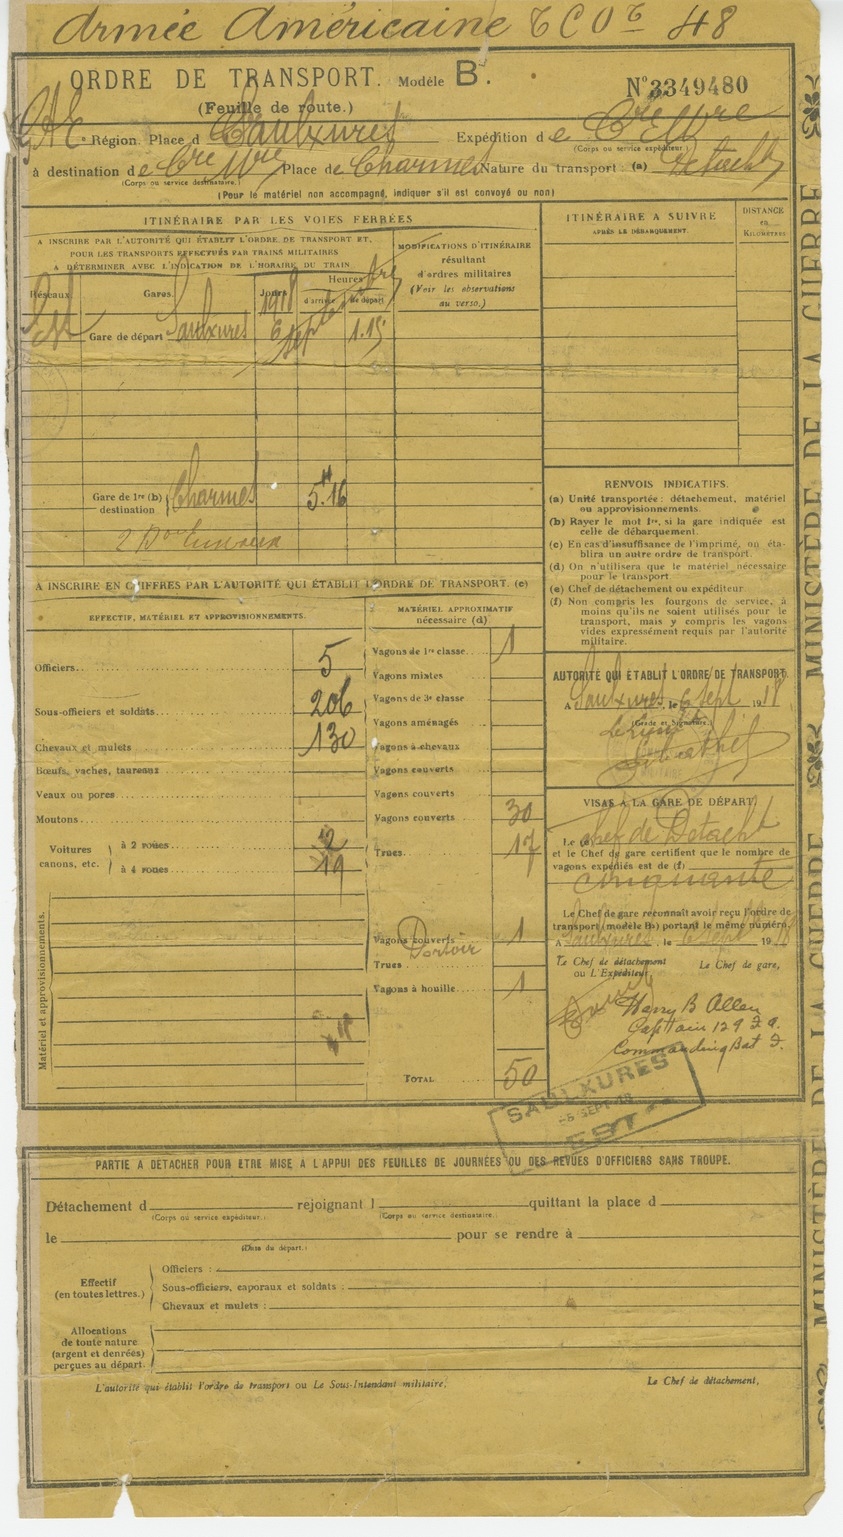 Armée Américaine TCO 48
ORDRE DE TRANSPORT. Modèle B.
N° 3349480
(Feuille de route.)
GAE e Région. Place d Saulxures Expédition d e
(Corps ou service expéditeur.)
à destination d e Place de Charmes Nature du transport : (a) Détacht
(Corps ou service destinataire.)
(Pour le matériel non accompagné, indiquer s'il est convoyé ou non)
ITINÉRAIRE PAR LES VOIES FERRÉES
A INSCRIRE PAR L'AUTORITÉ QUI ÉTABLIT L'ORDRE DE TRANSPORT ET,
POUR LES TRANSPORTS EFFECTUÉS PAR TRAINS MILITAIRES
A DÉTERMINER AVEC L'INDICATION DE L'HORAIRE DU TRAIN
MODIFICATIONS D'ITINÉRAIRE
résultant
d'ordres militaires
(Voir les observations
au verso.)
ITINÉRAIRE A SUIVRE
APRÈS LE DÉBARQUEMENT.
DISTANCE
en
KILOMÈTRES
Réseaux Gares. Jours Heures
d'arrivée de départ
1918
Est Gare de départ Saulxures 6 sept 1.15
Gare de 1re (b) destination Charmes 5H16
RENVOIS INDICATIFS.
(a) Unité transportée : détachement, matériel
ou approvisionnements.
(b) Rayer le mot 1re, si la gare indiquée est
celle de débarquement.
(c) En cas d'insuffisance de l'imprimé, on éta-
blira un autre ordre de transport.
(d) On n'utilisera que le matériel nécessaire
pour le transport
(e) Chef de détachement ou expéditeur
(f) Non compris les fourgons de service, à
moins qu'ils ne soient utilisés pour le
transport, mais y compris les vagons
vides expressément requis par l'autorité
militaire.
A INSCRIRE EN CHIFFRES PAR L'AUTORITÉ QUI ÉTABLIT L'ORDRE DE TRANSPORT. (c)
EFFECTIF, MATÉRIEL ET APPROVISIONNEMENTS.
MATÉRIEL APPROXIMATIF
nécessaire (d)
Officiers 5
Sous-officiers et soldats 206
Chevaux et mulets 130
Bœufs, vaches, taureaux
Veaux ou porcs
Moutons
Voitures canons, etc. à 2 roues 2
à 4 roues 19
Matériel et approvisionnements.
Vagons de 1re classe 1
Vagons mixtes
Vagons de 3e classe
Vagons aménagés
Vagons à chevaux
Vagons couverts
Vagons couverts
Vagons couverts 30
Trucs. 17
Vagons couverts Dortoir 1
Trucs
Vagons à houille 1
TOTAL 50
AUTORITÉ QUI ÉTABLIT L'ORDRE DE TRANSPORT.
A Saulxures, le 6 sept 1918
(Grade et Signature.)
VISAS A LA GARE DE DÉPART
Le (e) chef de Détacht
et le Chef de gare certifient que le nombre de
vagons expédiés est de (f)
cinquante
Le Chef de gare reconnaît avoir reçu l'ordre de
transport (modèle B) portant le même numéro
A Saulxures, le 6 sept 1918
Le Chef de détachement
ou L'Expéditeur
Le Chef de gare,
Harry B Allen
Captain 129 F.A.
Commanding Bat F.
SAULXURES
-6 SEPT 18
EST
PARTIE A DÉTACHER POUR ÊTRE MISE A L'APPUI DES FEUILLES DE JOURNÉES OU DES REVUES D'OFFICIERS SANS TROUPE.
Détachement d rejoignant l quittant la place d
(Corps ou service expéditeur.) (Corps ou service destinataire.)
le pour se rendre à
(Date du départ.)
Effectif
(en toutes lettres.)
Officiers :
Sous-officiers, caporaux et soldats :
Chevaux et mulets :
Allocations
de toute nature
(argent et denrées)
perçues au départ.
L'autorité qui établit l'ordre de transport ou Le Sous-Intendant militaire,
Le Chef de détachement,
MINISTÈRE DE LA GUERRE
MINISTÈRE DE LA GUERRE